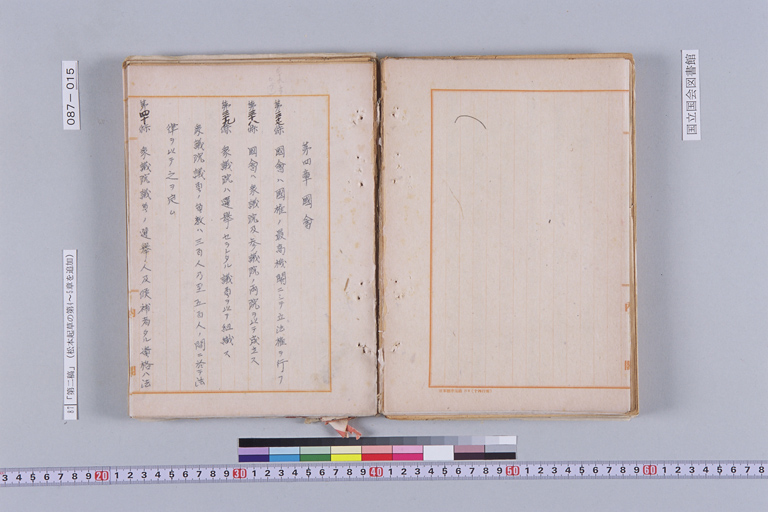 第四章 國會
第三十七條 國會ハ國權ノ最高機關ニシテ立法權ヲ行フ
第三十八條 國會ハ衆議院及参議院ノ兩院ヲ以テ成立ス
第三十九條 衆議院ハ選擧セラレタル議員ヲ以テ組織ス
衆議院議員ノ員數ハ三百人乃至五百人ノ間ニ於テ法
律ヲ以テ之ヲ定ム
第四十條 衆議院議員ノ選擧人及候補者タル資格ハ法
国立国会図書館
087-015
「第二稿」(松本起草の第4〜5章を追加)